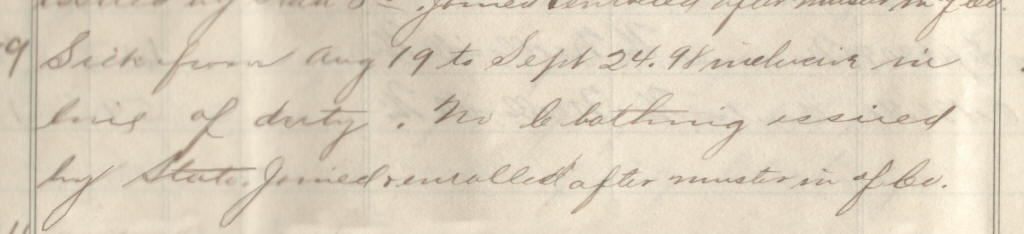 issued by State. Joined & enrolled after muster in of Co.
9 Sick from Aug 19 to Sept 24. 98 inclusive in
line of duty. No Clothing issued
by State. Joined & enrolled after muster in of Co.